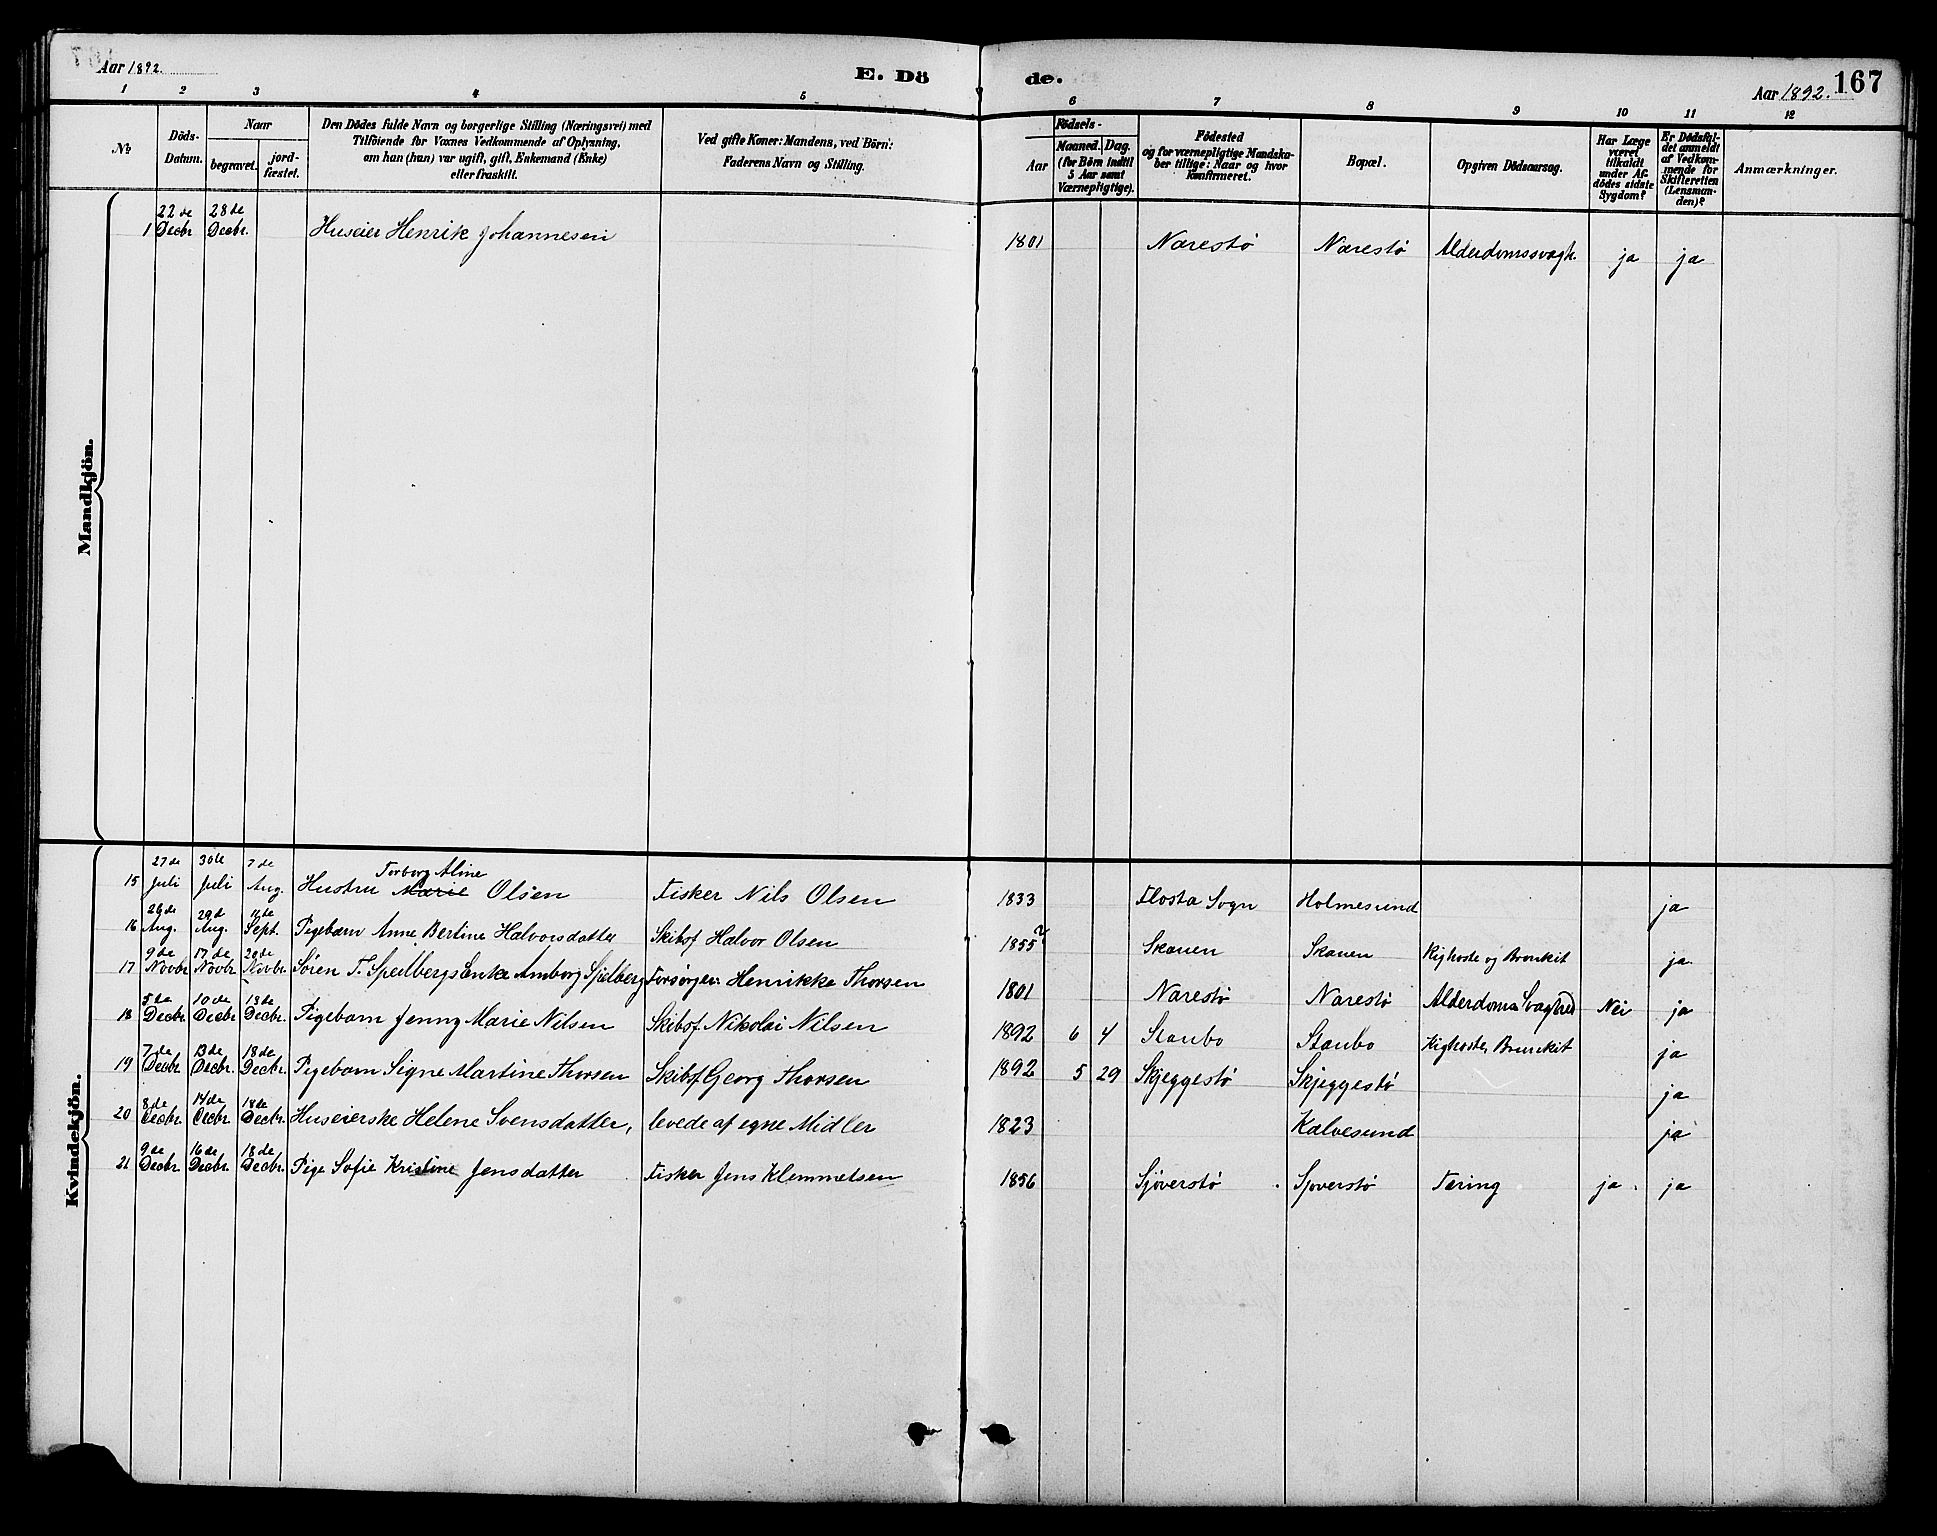 Aar 1892.
E. Dö
de.
Aar 1892.
167
1 2 3 4 5 6 7 8 9 10 11 12
№
Döds-
Datum.
Naar
begravet.
jord-
fæstet.
Den Dödes fulde Navn og borgerlige Stilling (Næringsvei) med
Tilföiende for Voxnes Vedkommende af Oplysning,
om han (hun) var ugift, gift, Enkemand (Enke)
eller fraskilt.
Ved gifte Koner: Mandens, ved Börn:
Faderens Navn og Stilling.
Födsels-
Aar
Maaned. Dag.
(for Börn indtil
5 Aar samt
Værnepligtige).
Födested
og for værnepligtige Mandska-
ber tillige: Naar og hvor
konfirmeret.
Bopæl.
Opgiven Dödsaarsag.
Har Læge
været
tilkaldt
under Af-
dödes sidste
Sygdom?
Er Dödsfal-
det anmeldt
af Vedkom-
mende for
Skifteretten
(Lensman-
den)?
Anmærkninger.
Mandkjön.
1 22de Decbr 28de Decbr. Huseier Henrik Johannesen 1801 Narestö Narestö Alderdomssvagh. ja ja
Kvindekjön.
15 27de Juli 30te Juli 7de Aug. Hustru Marie Torborg Aline Olsen Fisker Nils Olsen 1833 Flosta Sogn Holmesund ja
16 26de Aug. 29de Aug. Sept. Pigebarn Anne Bertine Halvorsdatter Skibsf Halvor Olsen 1855? Skaven Skaven Kighoste og Bronkit ja
17 9de Novbr 17de Novbr 20de Novbr. Søren F. Speilbergs Enke Amborg Spilberg Forsørger: Henrikke Thorsen 1801 Narestö Narestö Alderdoms Svaghed Nei ja
18 5de Decbr. 10de Decbr 13de Decbr. Pigebarn Jenny Marie Nilsen Skibsf. Nikolai Nilsen 1892 6 4 Staubo Staubo Kighoste, Bronkit ja
19 7de Decbr. 13de Decbr. 18de Decbr. Pigebarn Signe Martine Thorsen Skibsf Georg Thorsen 1892 5 29 Skjeggestö Skjeggestö ja
20 8de Decbr. 14de Decbr. 18de Decbr. Huseierske Helene Svensdatter, levede af egne Midler 1823 Kalvesund ja
21 9de Decbr. 16de Decbr. 18de Decbr. Pige Sofie Kristine Jensdatter Fisker Jens Klemmetsen 1856 Sjöverstö Sjöverstö Tæring ja ja